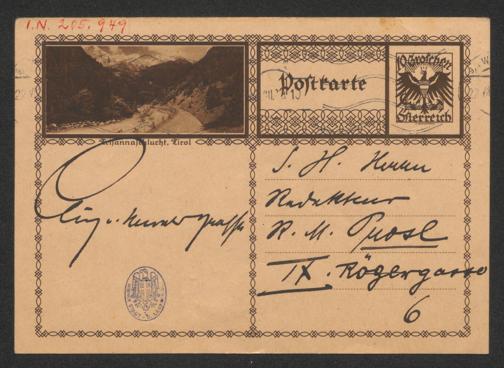 I.N. 205.949
Postkarte
10 Groschen
Österreich
Tirol
S. H. Herrn
Redakteur
R. M. Prosl
IX. Rögergasse
6